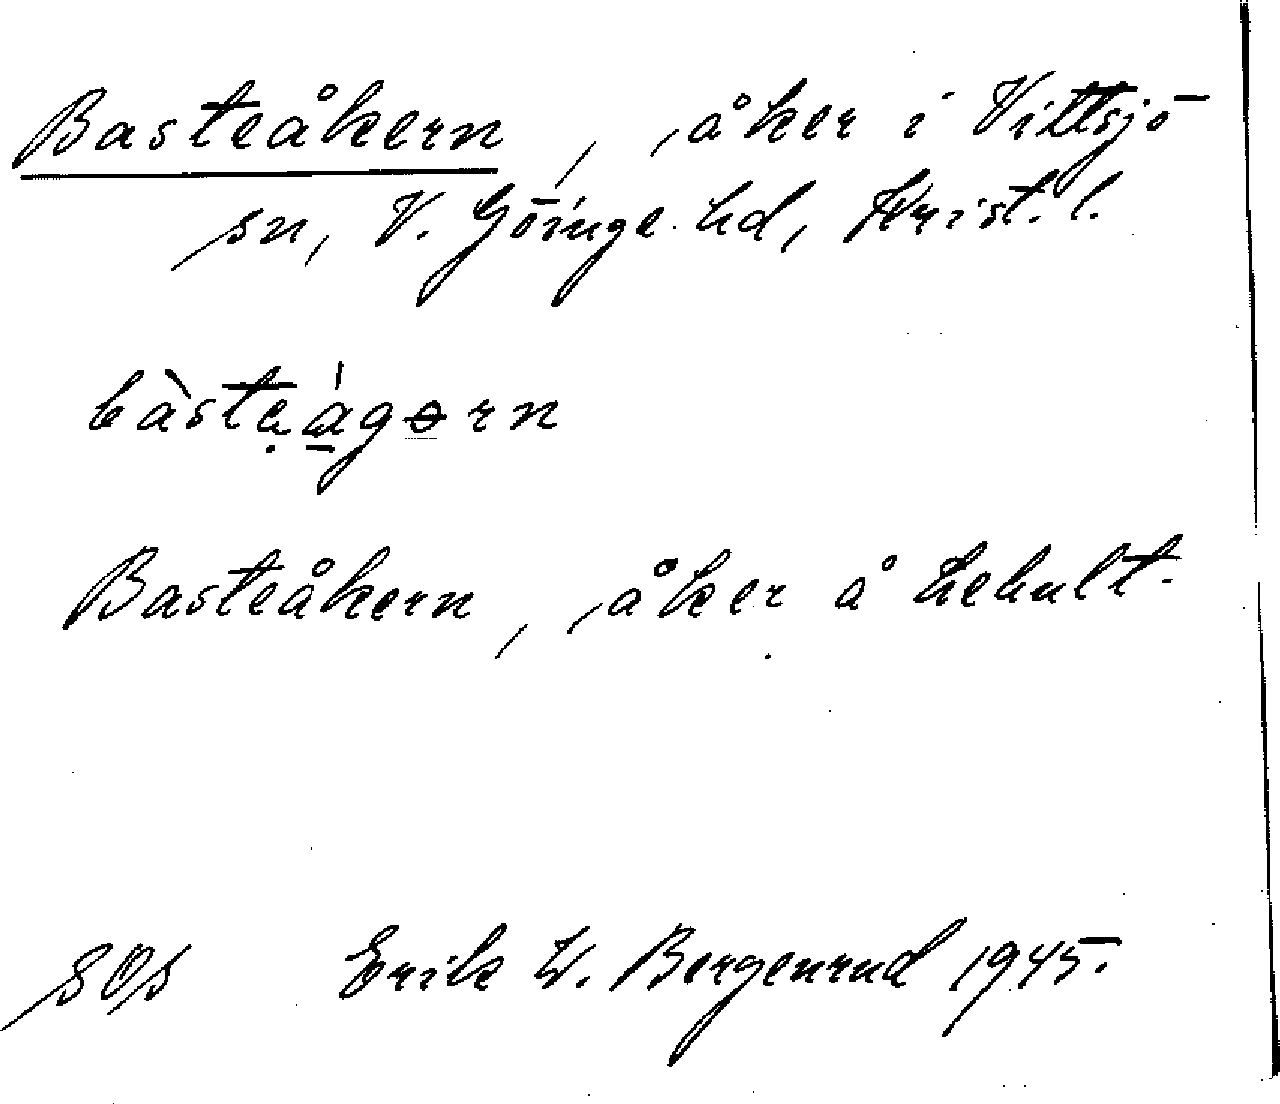 Basteåkern, åker i Vittsjö
sn, V. Göinge hd, Krist. l.
bàsteågərn
Basteåkern, åker å Hehult.
SOS Erik W. Bergenrud 1945.